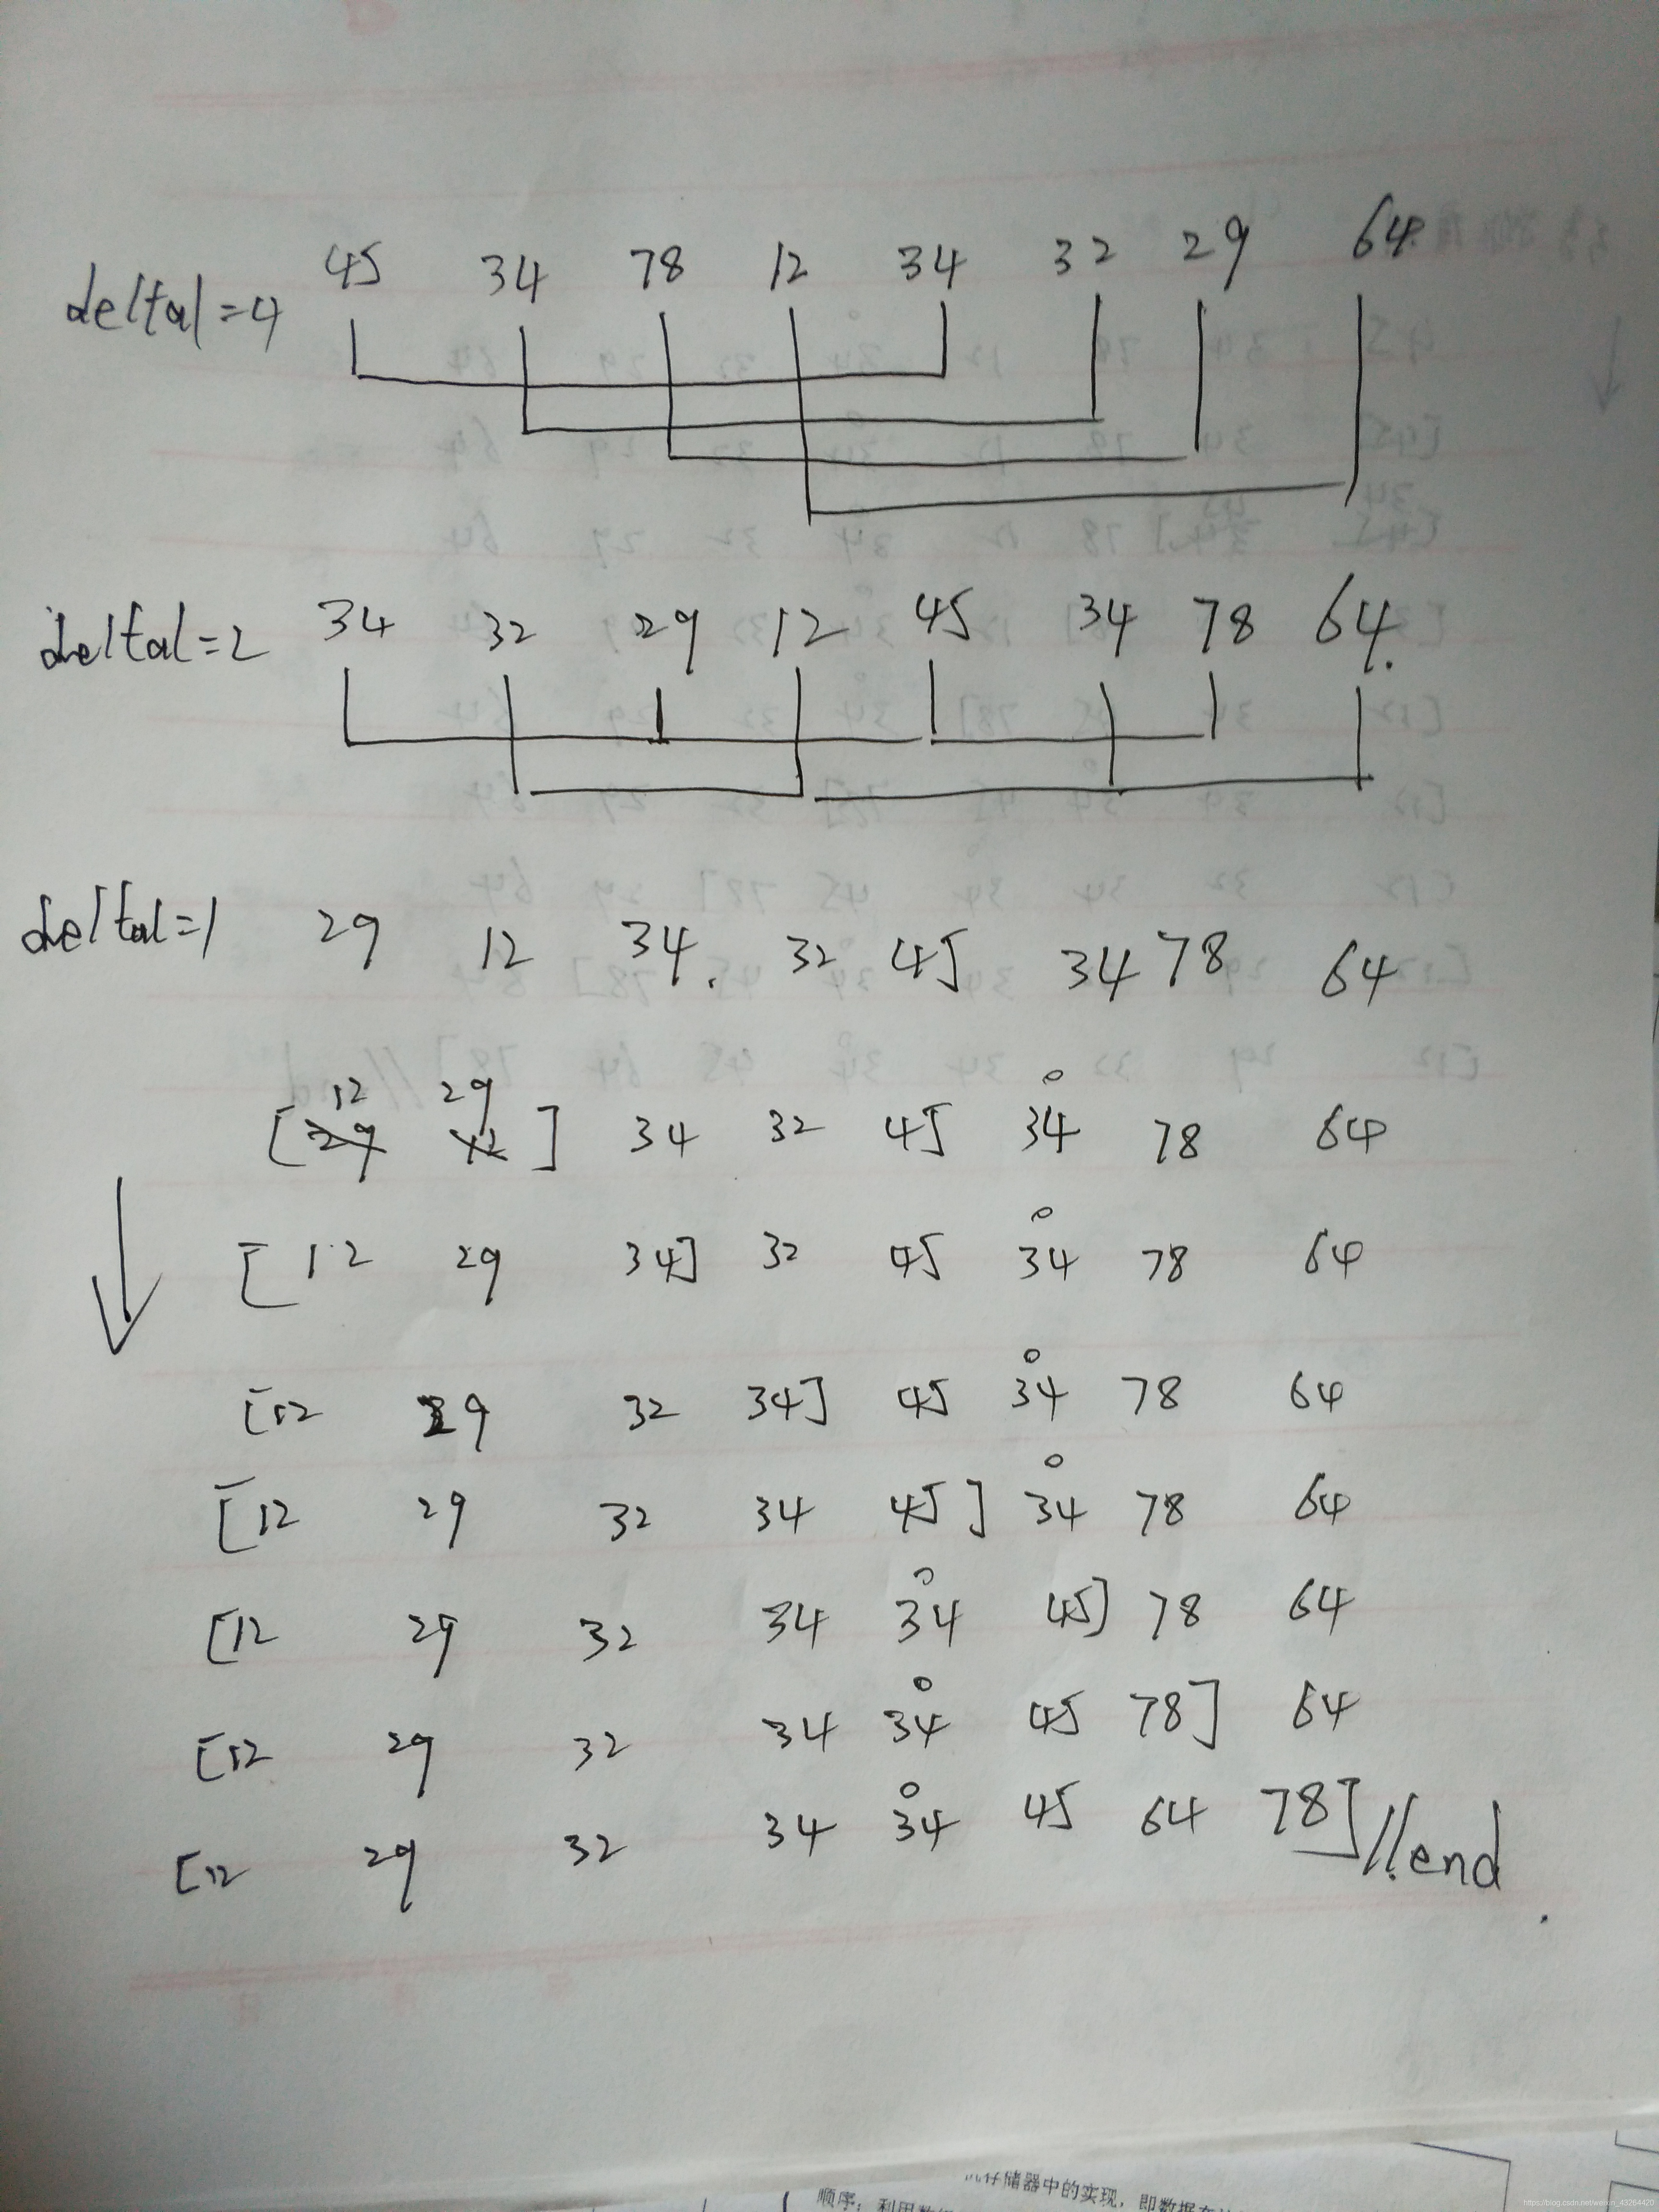 deltal=4 45 34 78 12 34 32 29 64
deltal=2 34 32 29 12 45 34 78 64.
deltal=1 29 12 34. 32 45 34 78 64
12 29
[29 12] 34 32 45 34 78 64
[12 29 34] 32 45 34 78 64
[12 29 32 34] 45 34 78 64
[12 29 32 34 45] 34 78 64
[12 29 32 34 34 45] 78 64
[12 29 32 34 34 45 78] 64
[12 29 32 34 34 45 64 78] //end
存储器中的实现，即数据
顺序；利用
https://blog.csdn.net/weixin_43264420